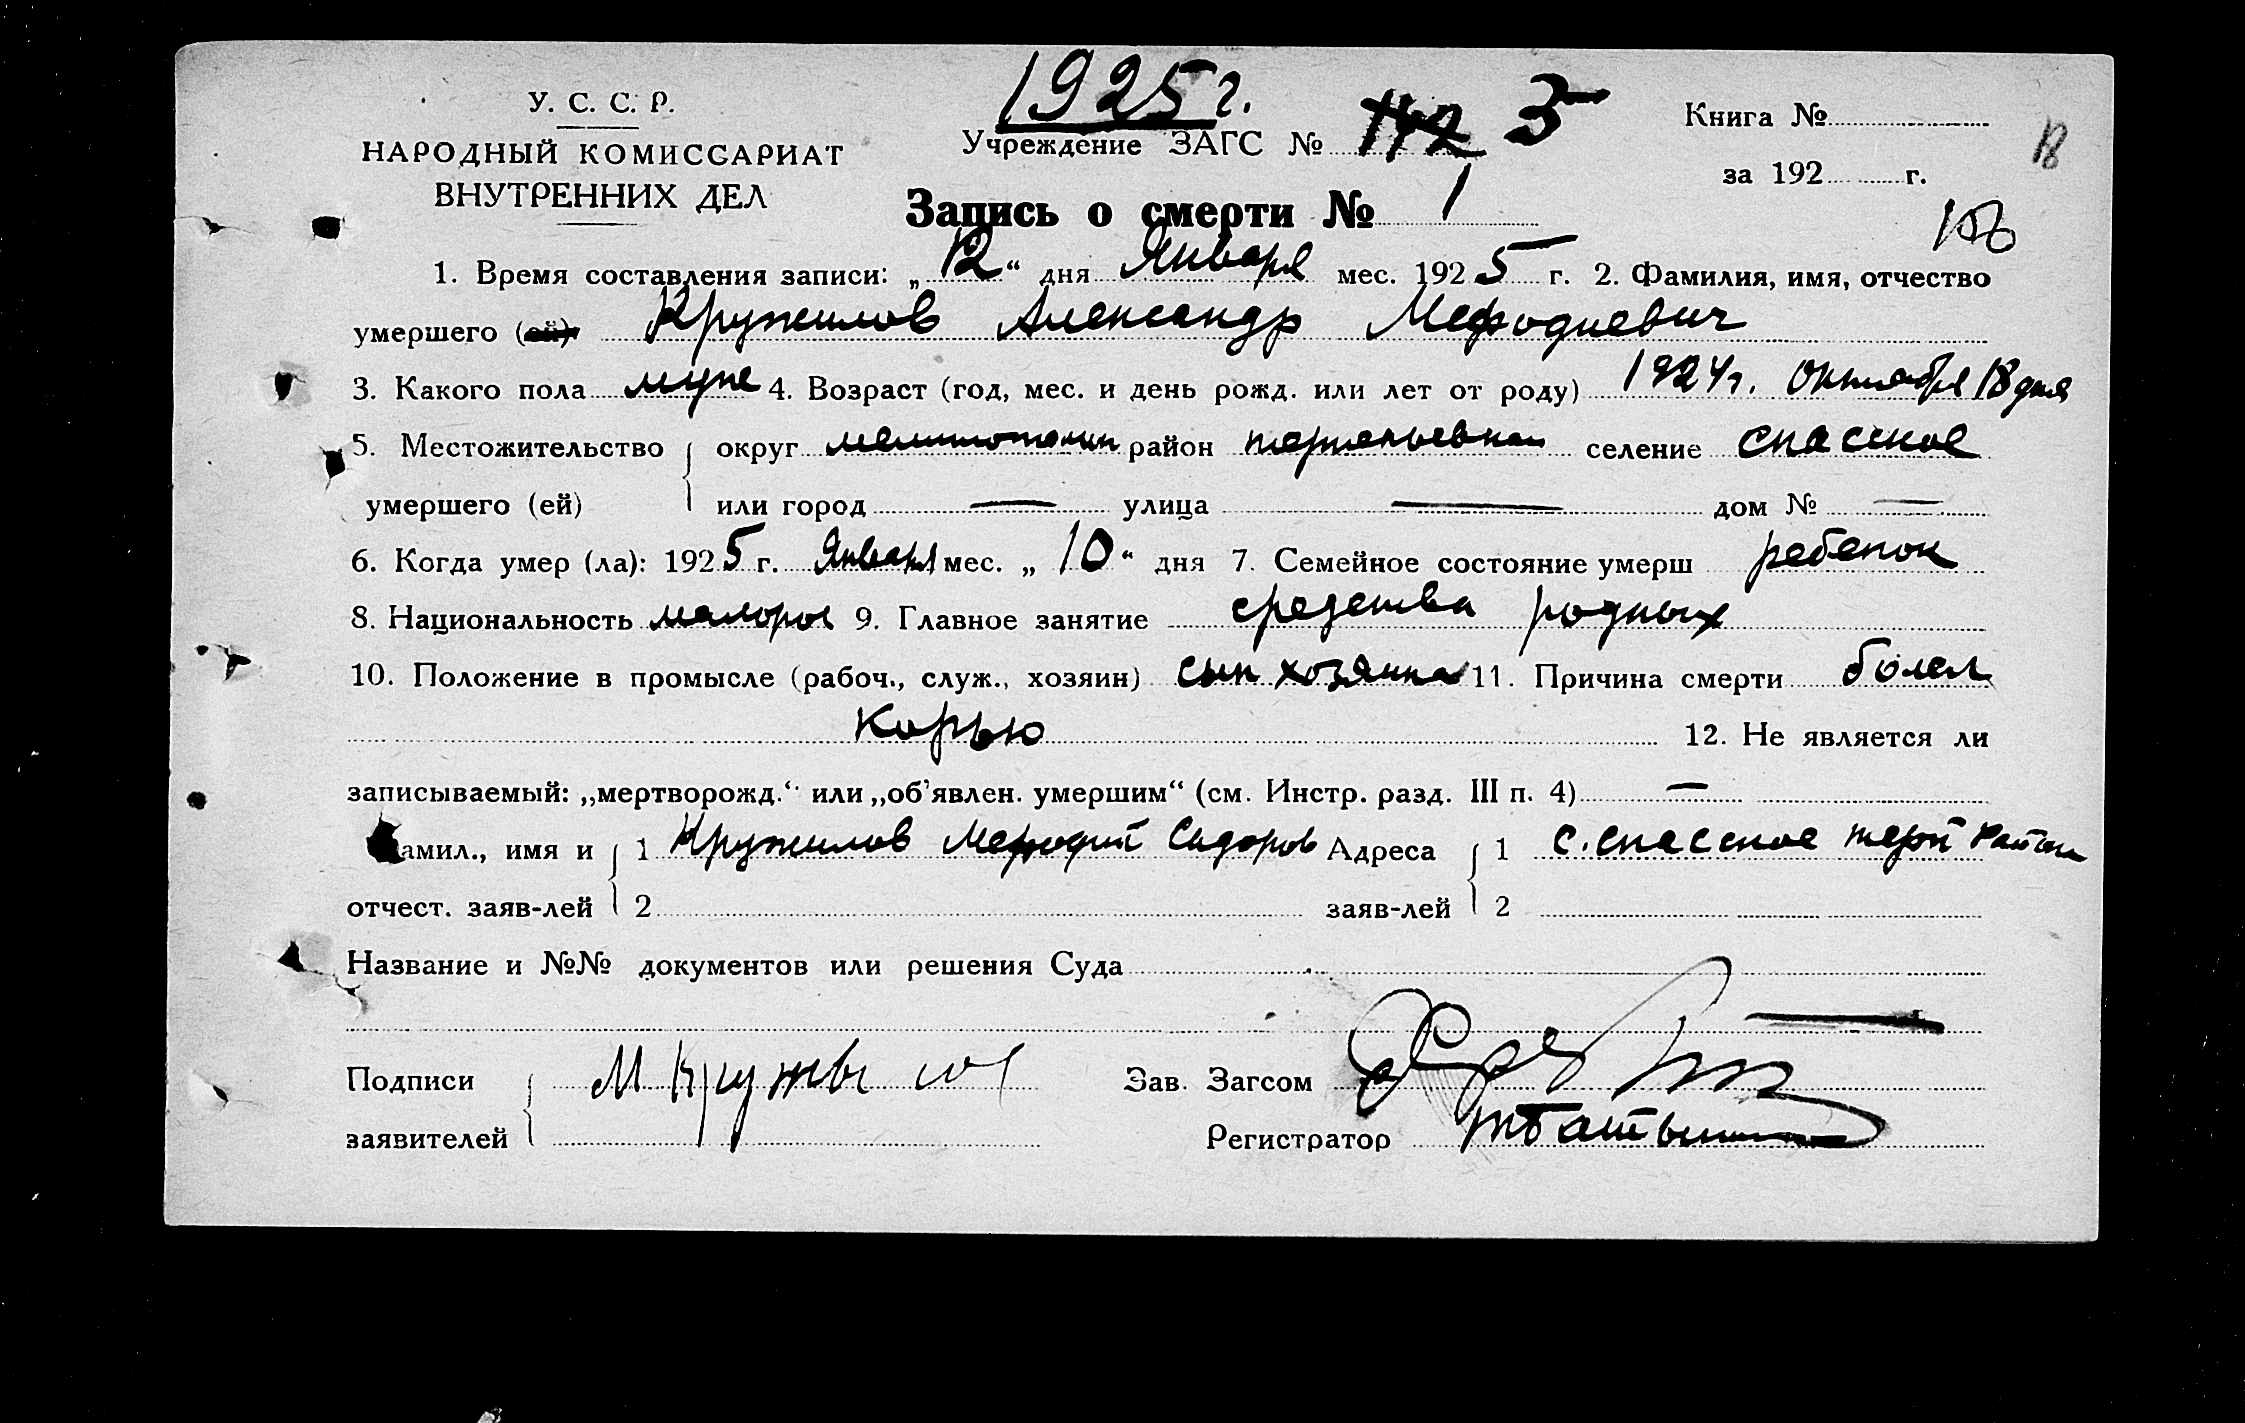 1925 г.
У. С. С. Р.
НАРОДНЫЙ КОМИССАРИАТ
ВНУТРЕННИХ ДЕЛ
Учреждение ЗАГС № 142 5
Книга №
за 192 г.
18
Запись о смерти № 1
156
1. Время составления записи: „12“ дня Января мес. 1925 г. 2. Фамилия, имя, отчество
умершего (ей) Кружилов Александр Мефодиевич
3. Какого пола муже 4. Возраст (год, мес. и день рожд. или лет от роду) 1924 г. октября 18 дня
5. Местожительство округ район селение спасское
умершего (ей) или город — улица — дом № —
6. Когда умер (ла): 1925 г. Января мес. „10“ дня 7. Семейное состояние умерш ребенок
8. Национальность малорос 9. Главное занятие средства родных
10. Положение в промысле (рабоч., служ., хозяин) сын хозяина 11. Причина смерти болел
корью 12. Не является ли
записываемый: „мертворожд.“ или „об'явлен. умершим“ (см. Инстр. разд. III п. 4) —
амил., имя и 1 Кружилов Мефодий Сидоров Адреса 1 с. спасское терп район
отчест. заяв-лей 2 заяв-лей 2
Название и №№ документов или решения Суда
Подписи М Кружы
Зав. Загсом
заявителей
Регистратор